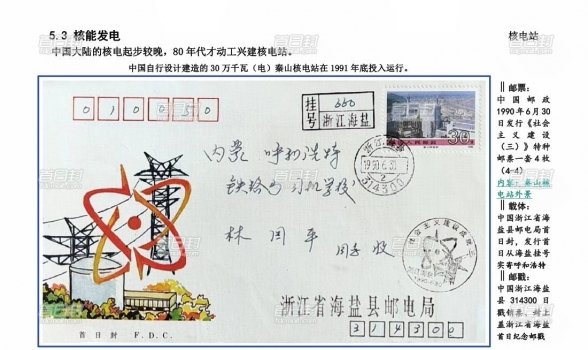 5.3 核能发电
核电站
中国大陆的核电起步较晚，80 年代才动工兴建核电站。
中国自行设计建造的 30 万千瓦（电）秦山核电站在 1991 年底投入运行。
010050
挂号
350
浙江海盐
内蒙 呼和浩特
铁路司机学校
林
同志收
浙江海盐
1990.6.30
314300
30
浙江省海盐县邮电局
314300
首日封 F.D.C.
邮票：
中国邮政
1990 年 6 月 30
日发行《社会
主义建设
（三）》特种
邮票一套 4 枚
（4-4）
内容：秦山核
电站外景
载体：
中国浙江省海
盐县邮电局首
日封，发行首
日从海盐挂号
实寄呼和浩特
邮戳：
中国浙江海盐
县 314300 日
戳销票，封上
盖浙江省海盐
首日纪念邮戳